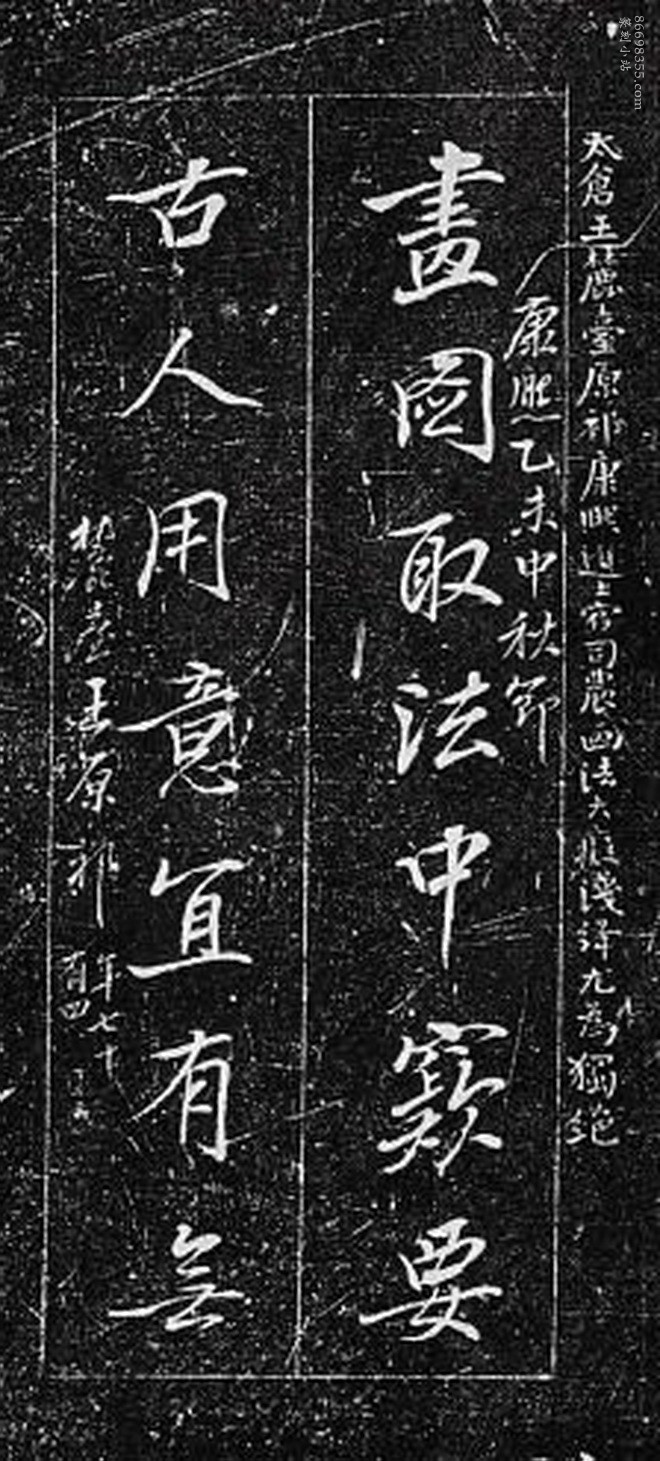 86698355.com
篆刻小站
太倉王麓臺原祁康熙進士官司農画法大癡淺絳尤為獨絕
康熙乙未中秋節
畫圖取法中窾要
古人用意宜有無
麓臺王原祁
年七十
有四